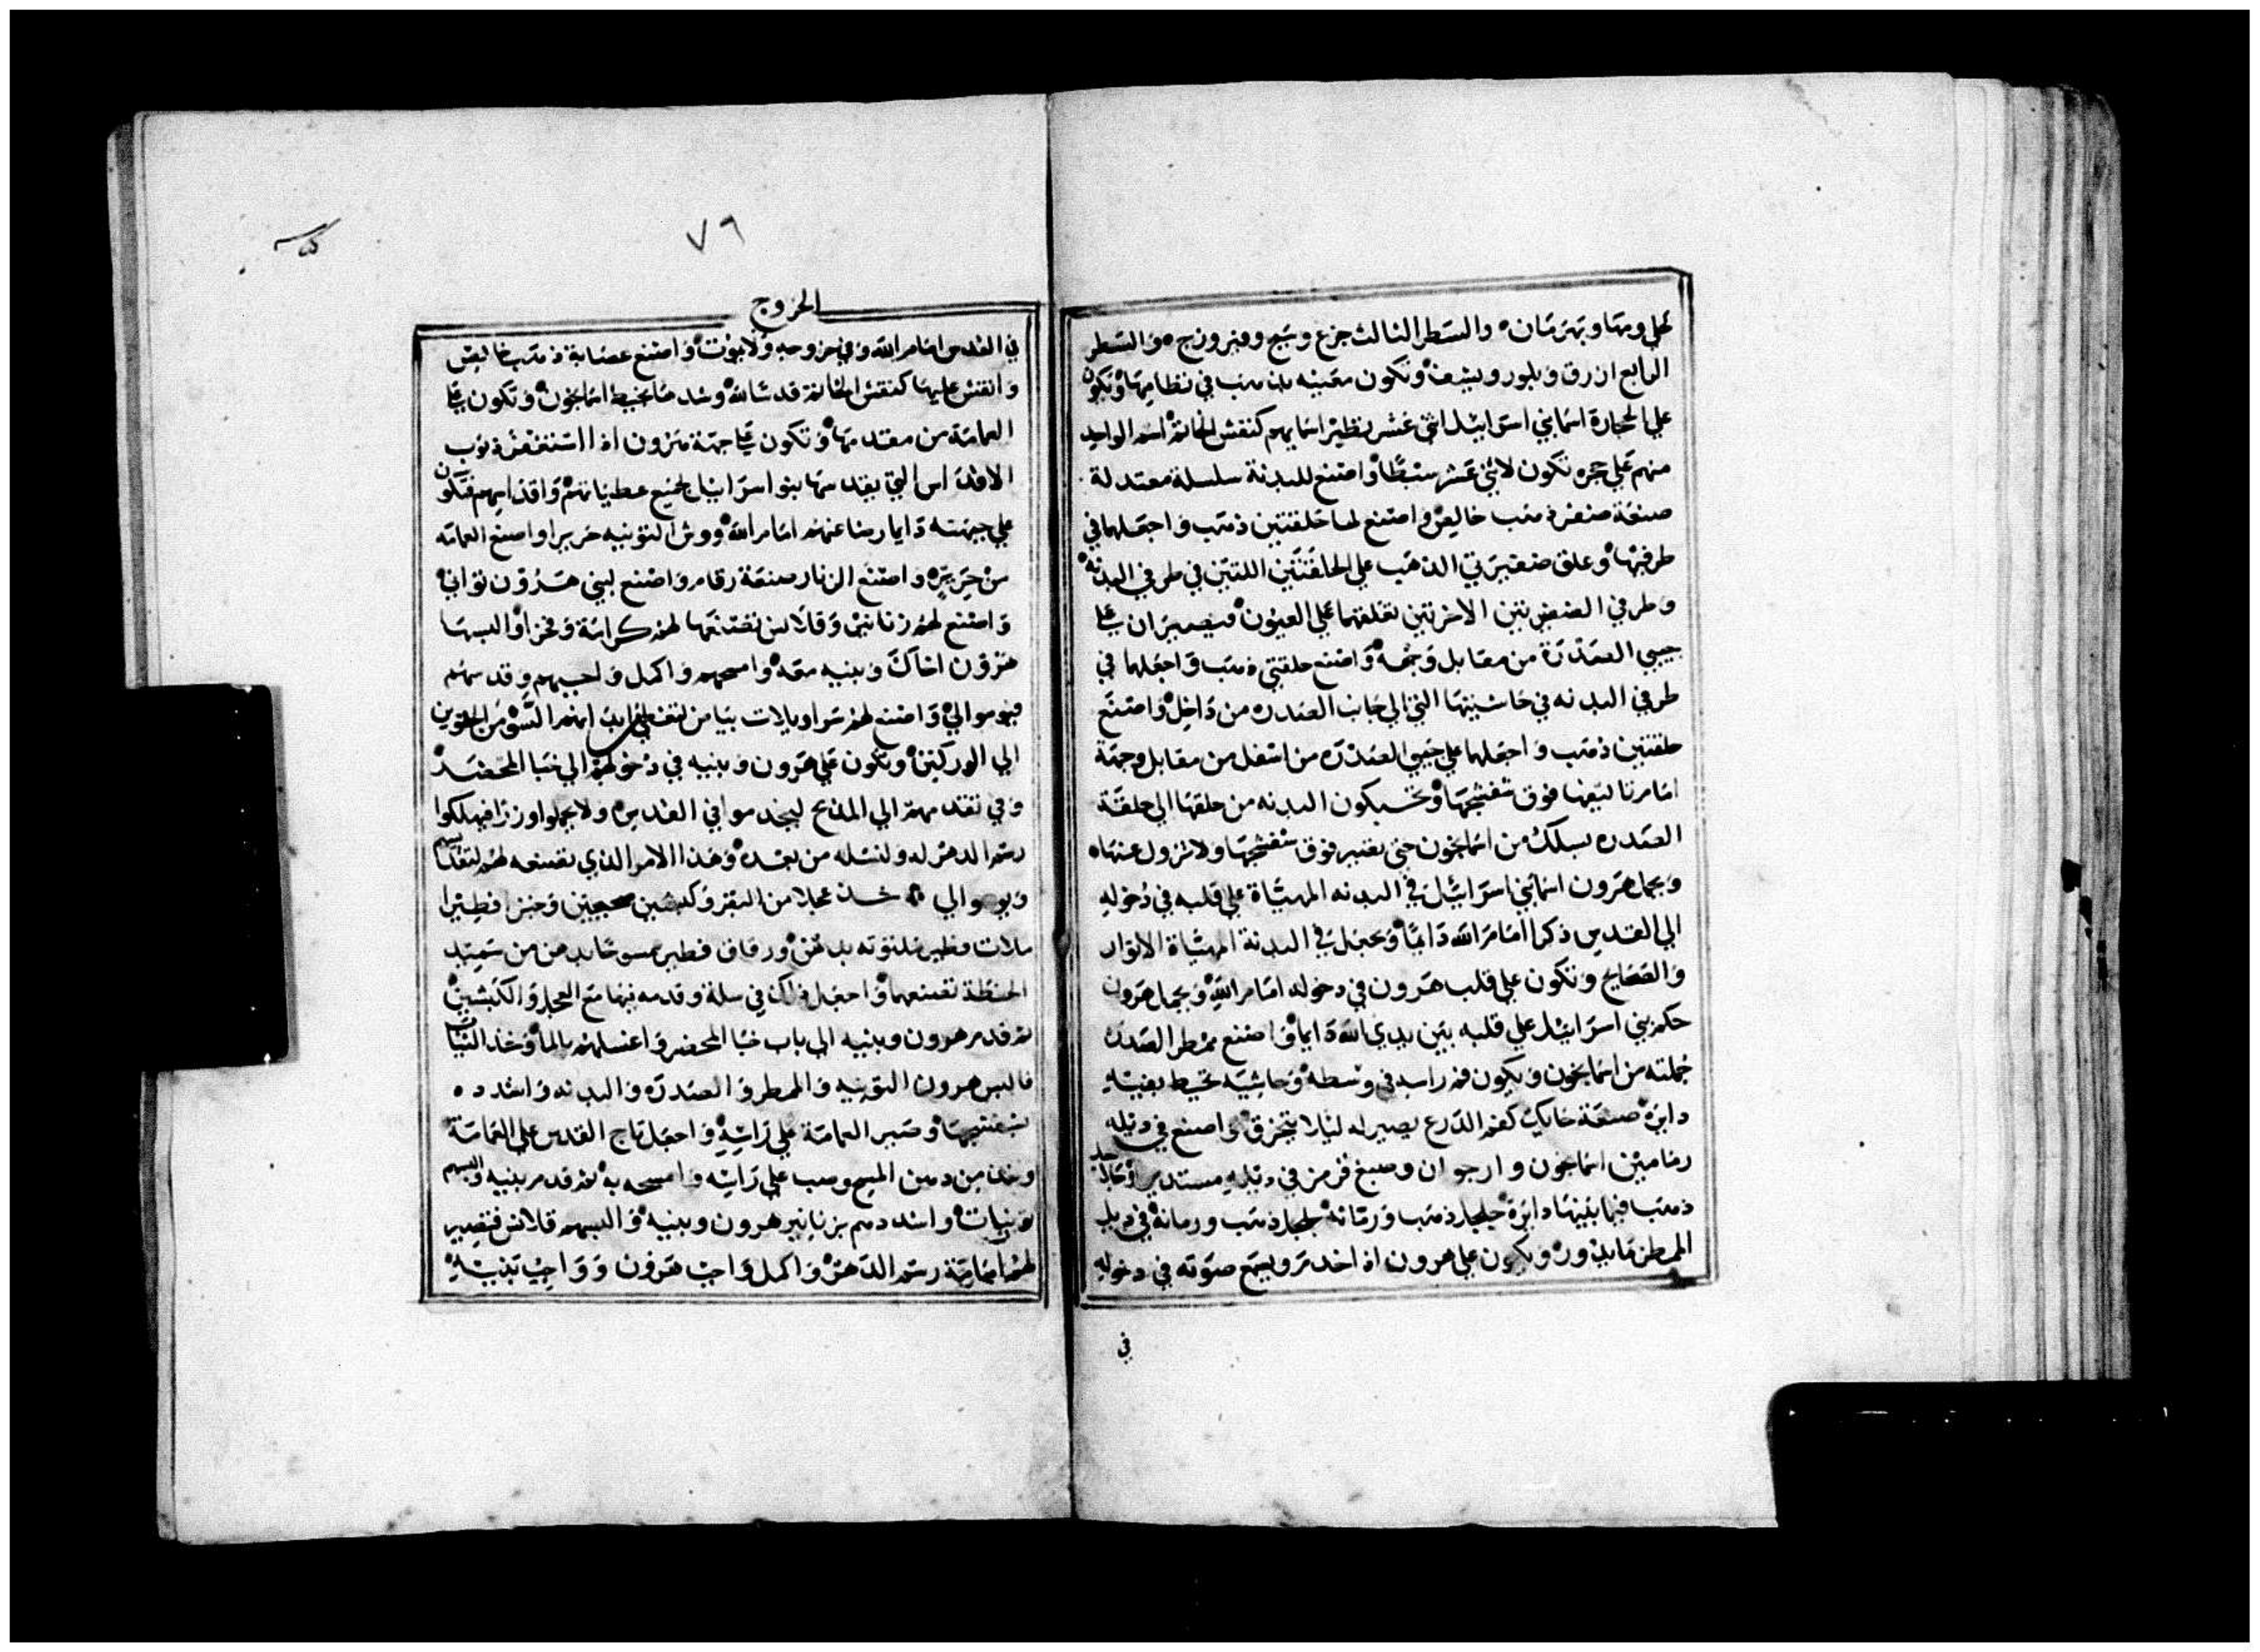 كحلي ومها وبهرمان والسطر الثالث جزع وسبج وفيروزج والسطر
الرابع ازرق وبلور ويشف وتكون معينه بذهب في نظامها وتكون
علي الحجارة اسما بني اسرائيل اثني عشر نظير اسمايهم كنقش الخاتم اسم الواحد
منهم علي حجره تكون لاثني عشر سبطا واصنع للبدنة سلسلة معتدلة
صنعة ضفر ذهب خالص واصنع لها حلقتين ذهب واجعلهما في
طرفيها وعلق ضفيرتي الذهب علي الحلقتين اللتين في طرفي البدنه
وطرفي الضفيرتين الاخرتين تعلقهما علي العيون فيصيران علي
جيبي الصدرة من مقابل وجهه واصنع حلقتي ذهب واجعلهما في
طرفي البدنه في حاشيتها التي الي جانب الصدره من داخل واصنع
حلقتين ذهب واجعلهما علي جيبي الصدره من اسفل من مقابل وجهة
امامرنا ليعها فوق شفشجها وتحبكون البدنه من حلقها الي حلقة
الصدره بسلك من اسمانجون حتي يصير فوق شفشجها ولا تزول عنها
ويحمل هرون اسما بني اسرائيل في البدنه المهياة علي قلبه في دخوله
الي القدس ذكرا امام الله دايما وتجعل في البدنة المهياة الانوار
والصحايح وتكون علي قلب هرون في دخوله امام الله ويحمل هرون
حكم بني اسرائيل علي قلبه بين يدي الله دايما واصنع ممطر الصدره
جملته من اسمانجون ويكون فم راسه في وسطه وحاشيه تحيط بفيه
دايره صنعة حايك كفم الدرع يصير له ليلا يتخزق واصنع في ذيله
رمامين اسمانجون وارجوان وصبغ قرمز في ذيله مستديرا وجلاجل
ذهب فيما بينها دايرة جلجل ذهب ورمانه جلجل ذهب ورمانه في ذيل
الممطر مايدور ويكون علي هرون اذا خدم ويسمع صوته في دخوله
في
٧٩
الخروج
في القدس امام الله وفي خروجه ولا يموت واصنع عصابة ذهب خالص
وانقش عليها كنقش الخاتم قدسا لله وشدها بخيط اسمانجون وتكون علي
العمامة من مقدمها وتكون علي جبهة هرون اذا استغفر ذنوب
الاقداس التي يقدسها بنو اسرائيل لجميع عطياتهم واقداسهم فتكون
علي جبهته دايما رضا عنهم امام الله ووش التونيه حريرا واصنع العمامه
من حرير واصنع الزنار صنعة رقام واصنع لبني هرون تواني
واصنع لهم زنانير وقلانس تصنعها لهم كرامة وفخرا والبسها
هرون اخاك وبنيه معه وامسحهم واكمل واجبهم وقدسهم
فيوموالي واصنع لهم سراويلات بيامن لتغطي ابدانهم السو من الحقوين
الي الوركين وتكون علي هرون وبنيه في دخولهم الي خبا المحضر
وفي تقدمهم الي المذبح ليخدموا في القدس ولا يحملوا وزرا فيهلكوا
رسم الدهر له ولنسله من بعده وهذا الامر الذي تصنعه لهم لتقدسهم
ويوموالي خذ عجلا من البقر وكبشين صحيحين وخبز فطيرا
ملات فطير ملتوته بدهن ورقاق فطير ممسوحا بدهن من سميد
الحنطة تصنعها واجعل ذلك في سلة وقدمه فيها مع العجل والكبشين
ثم قدم هرون وبنيه الي باب خبا المحضر واغسلهم بالما وخذ الثياب
فالبس هرون التونيه والممطر والصدره والبدنه واشدده
بشفشجها وصير العمامة علي راسه واجعل تاج القدس علي العمامة
وخذ من دهن المسح وصب علي راسه وامسحه به ثم قدم بنيه والبسهم
تونيات واشددهم بزنانير هرون وبنيه والبسهم قلانس فتصير
لهم امامة رسم الدهر واكمل واجب هرون وواجب بنيه